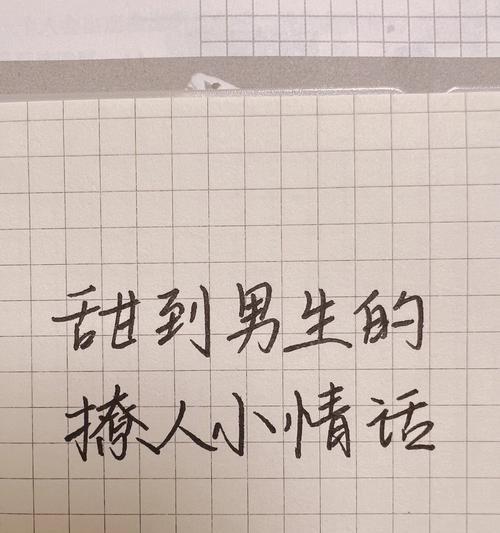 甜到男生的
撩人小情话